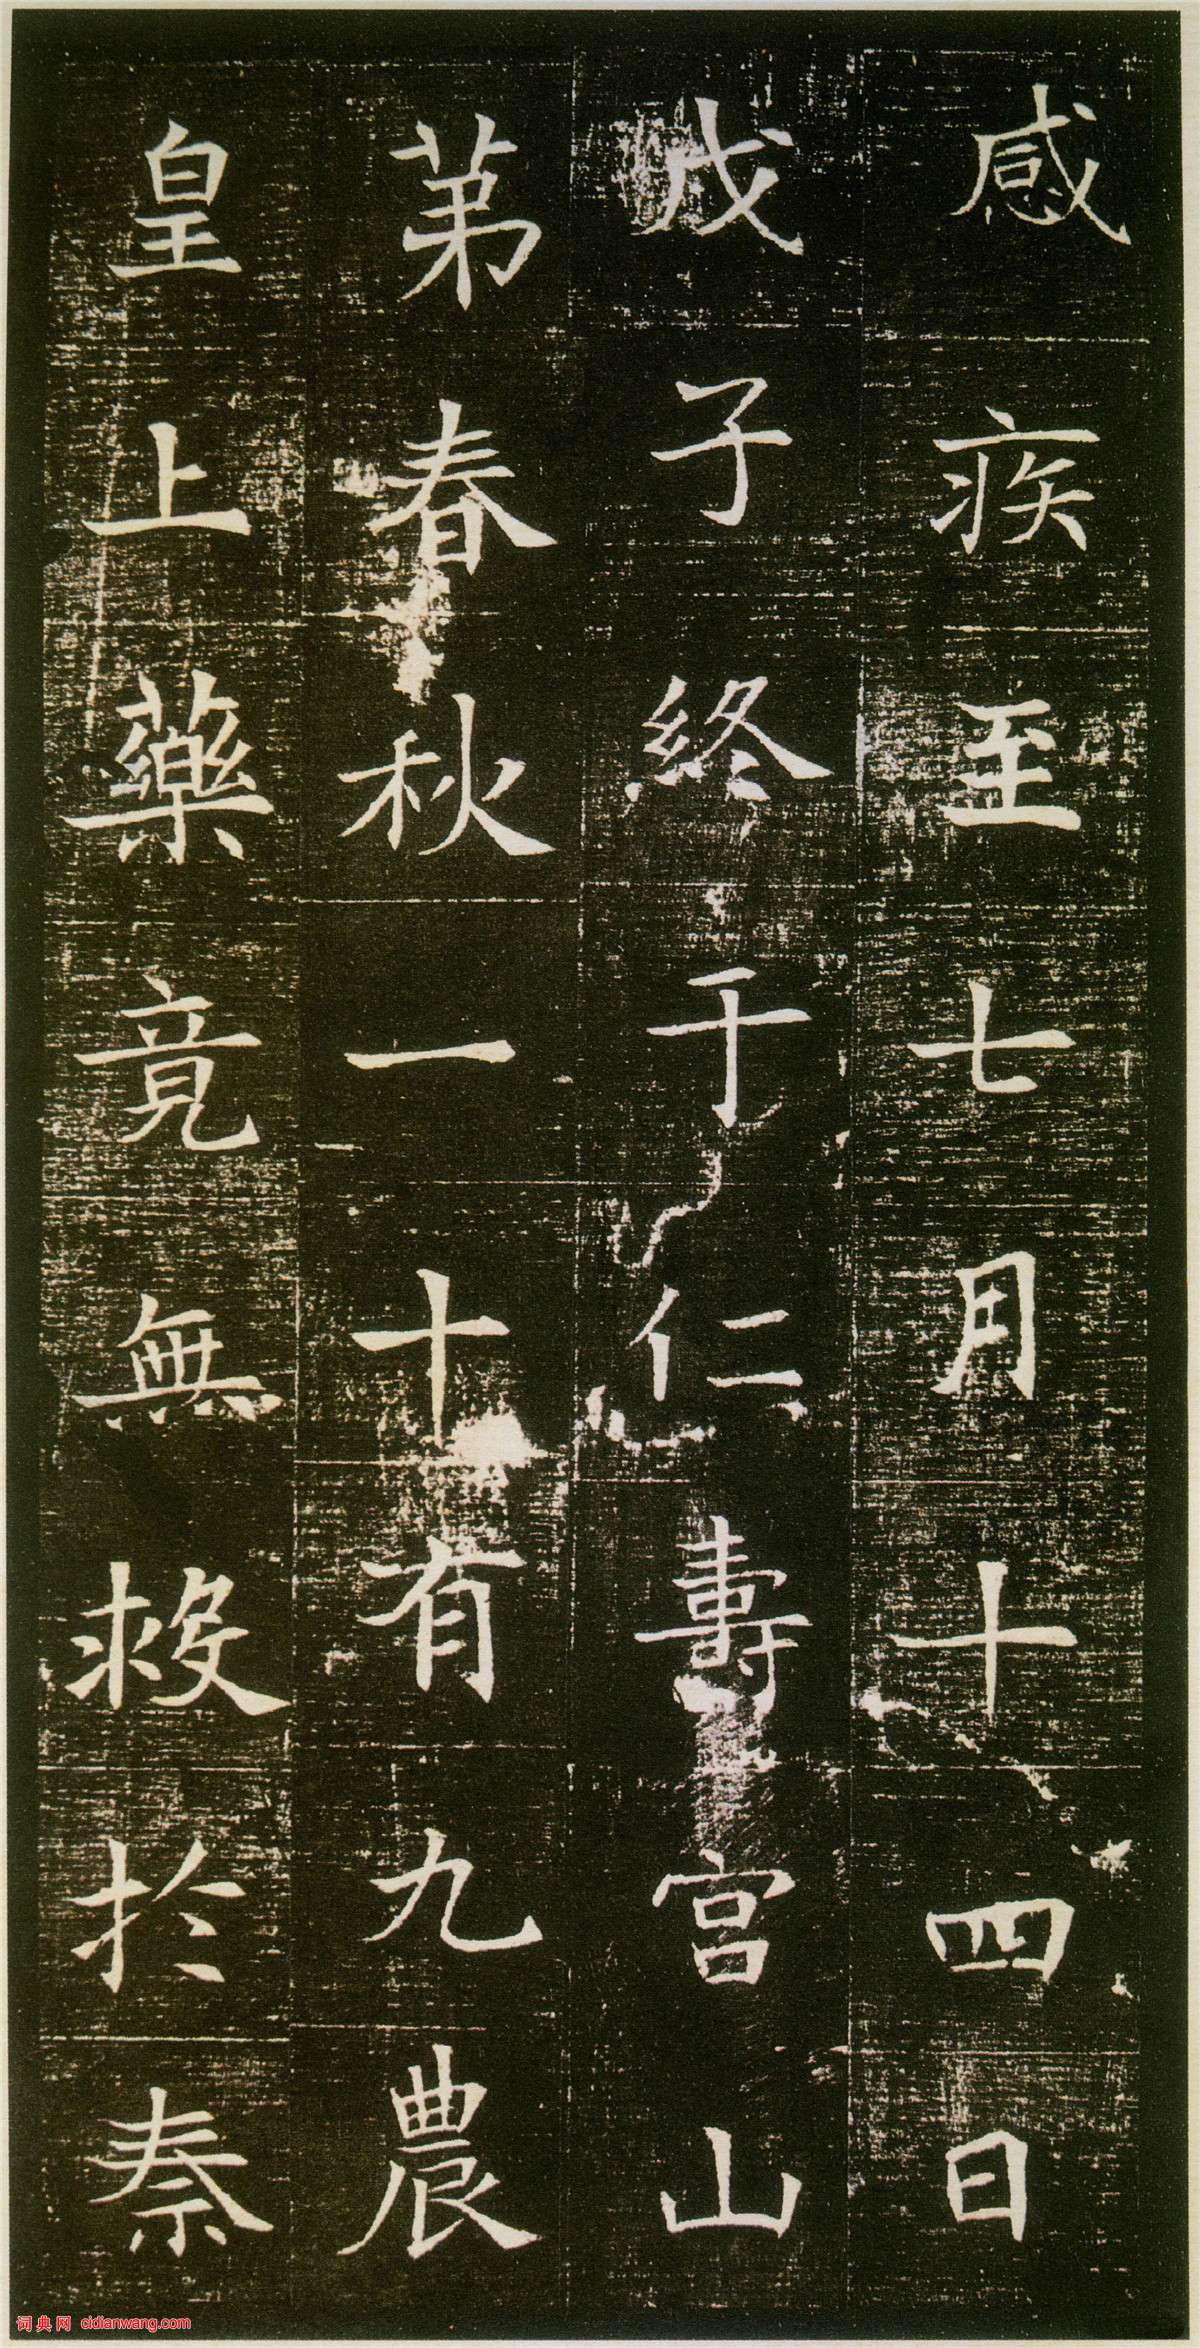 感疾至七月十四日
戊子終于仁壽宮山
苐春秋一十有九農
皇上藥竟無救於秦
词典网 cidianwang.com